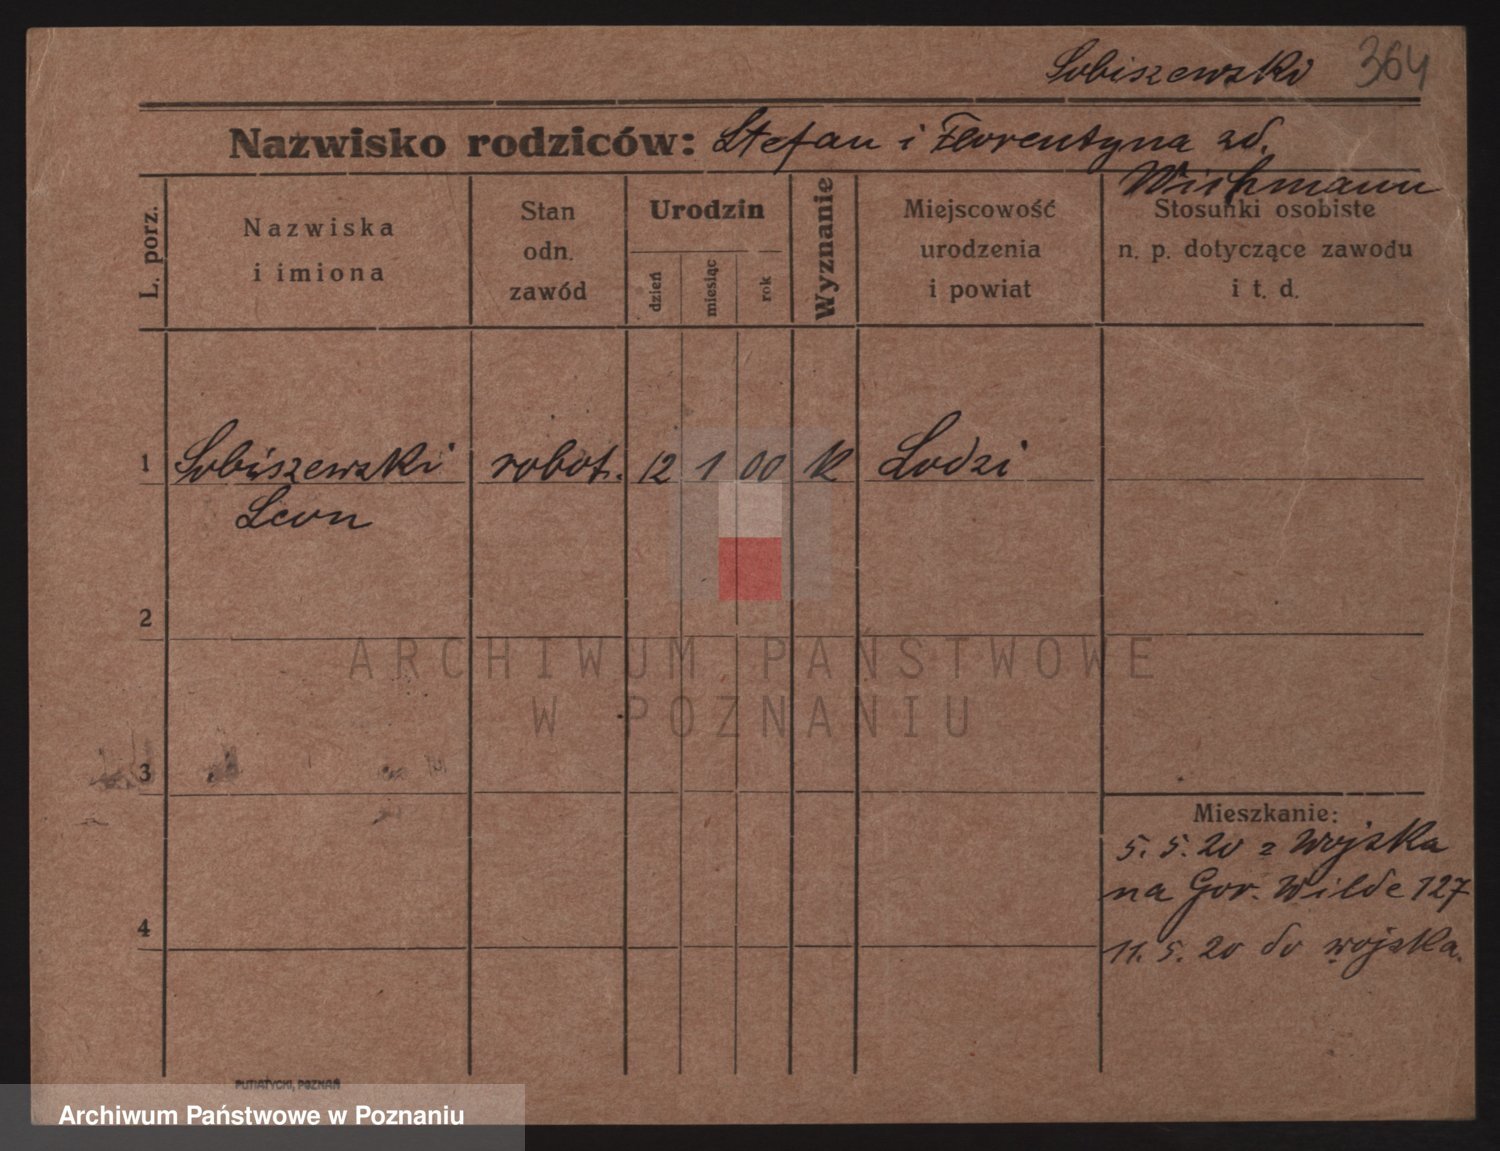 Sobiszewski 364
Nazwisko rodziców: Stefan i Florentyna zd.
Wichmann
L. porz.
Nazwiska
i imiona
Stan
odn.
zawód
Urodzin
dzień
miesiąc
rok
Wyznanie
Miejscowość
urodzenia
i powiat
Stosunki osobiste
n. p. dotyczące zawodu
i t. d.
1 Sobiszewski robot. 12 1 00 K Lodzi
Leon
2
ARCHIWUM PAŃSTWOWE
W POZNANIU
3
Mieszkanie:
5. 5. 20 z Wojska
na Gor. Wilde 127
4
11. 5. 20 do wojska.
PUTIATYCKI, POZNAŃ
Archiwum Państwowe w Poznaniu